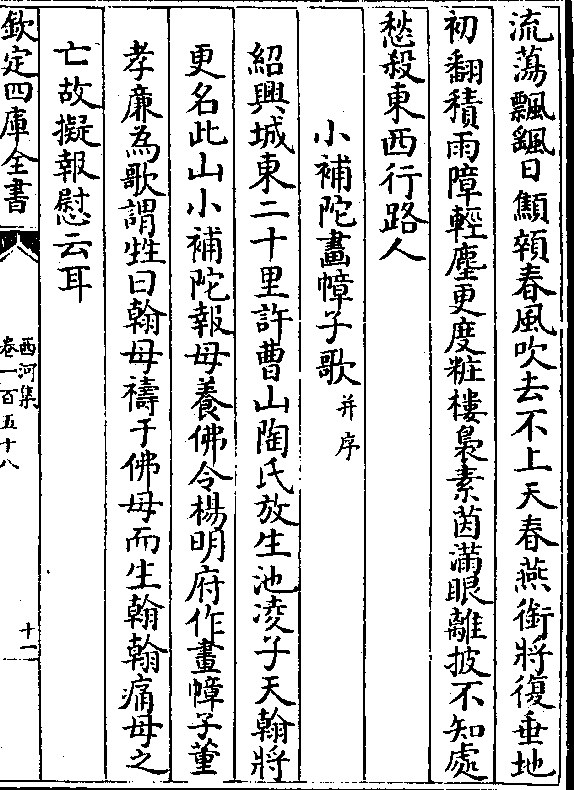 流蕩飄颻日顦顇春風吹去不上天春燕銜將復垂地
初翻積雨障輕塵更度粧樓裊素茵滿眼離披不知處
愁殺東西行路人
小補陀畫幛子歌并序
紹興城東二十里許曹山陶氏放生池凌子天翰將
更名此山小補陀報母養佛令楊明府作畫幛子董
孝廉為歌謂甡曰翰母禱于佛母而生翰翰痛母之
亡故擬報慰云耳
欽定四庫全書
西河集
卷一百五十八
十一